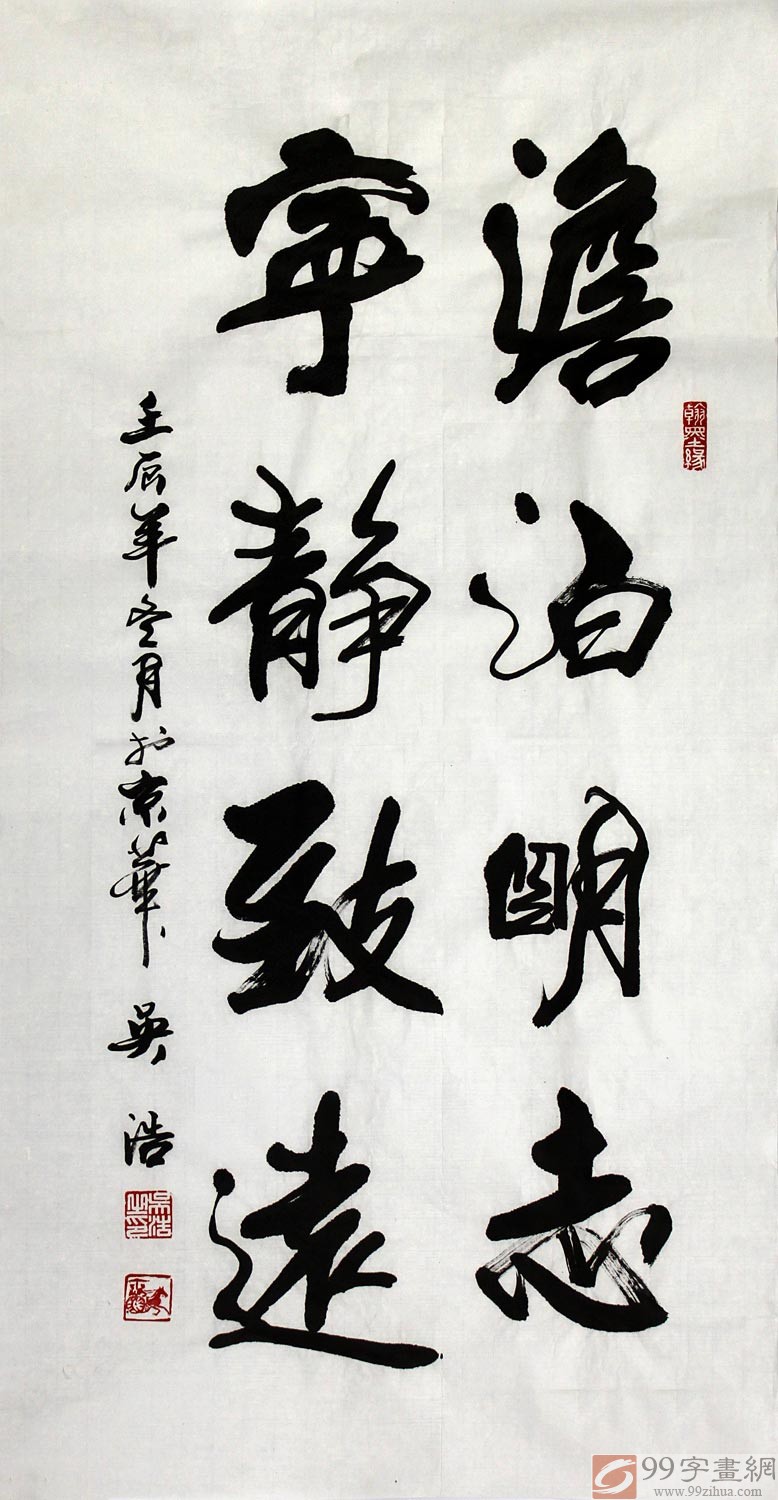 澹泊明志
寧靜致遠
壬辰年冬月於京華 吳浩
翰墨緣
吳浩之印
99字畫網
www.99zihua.com